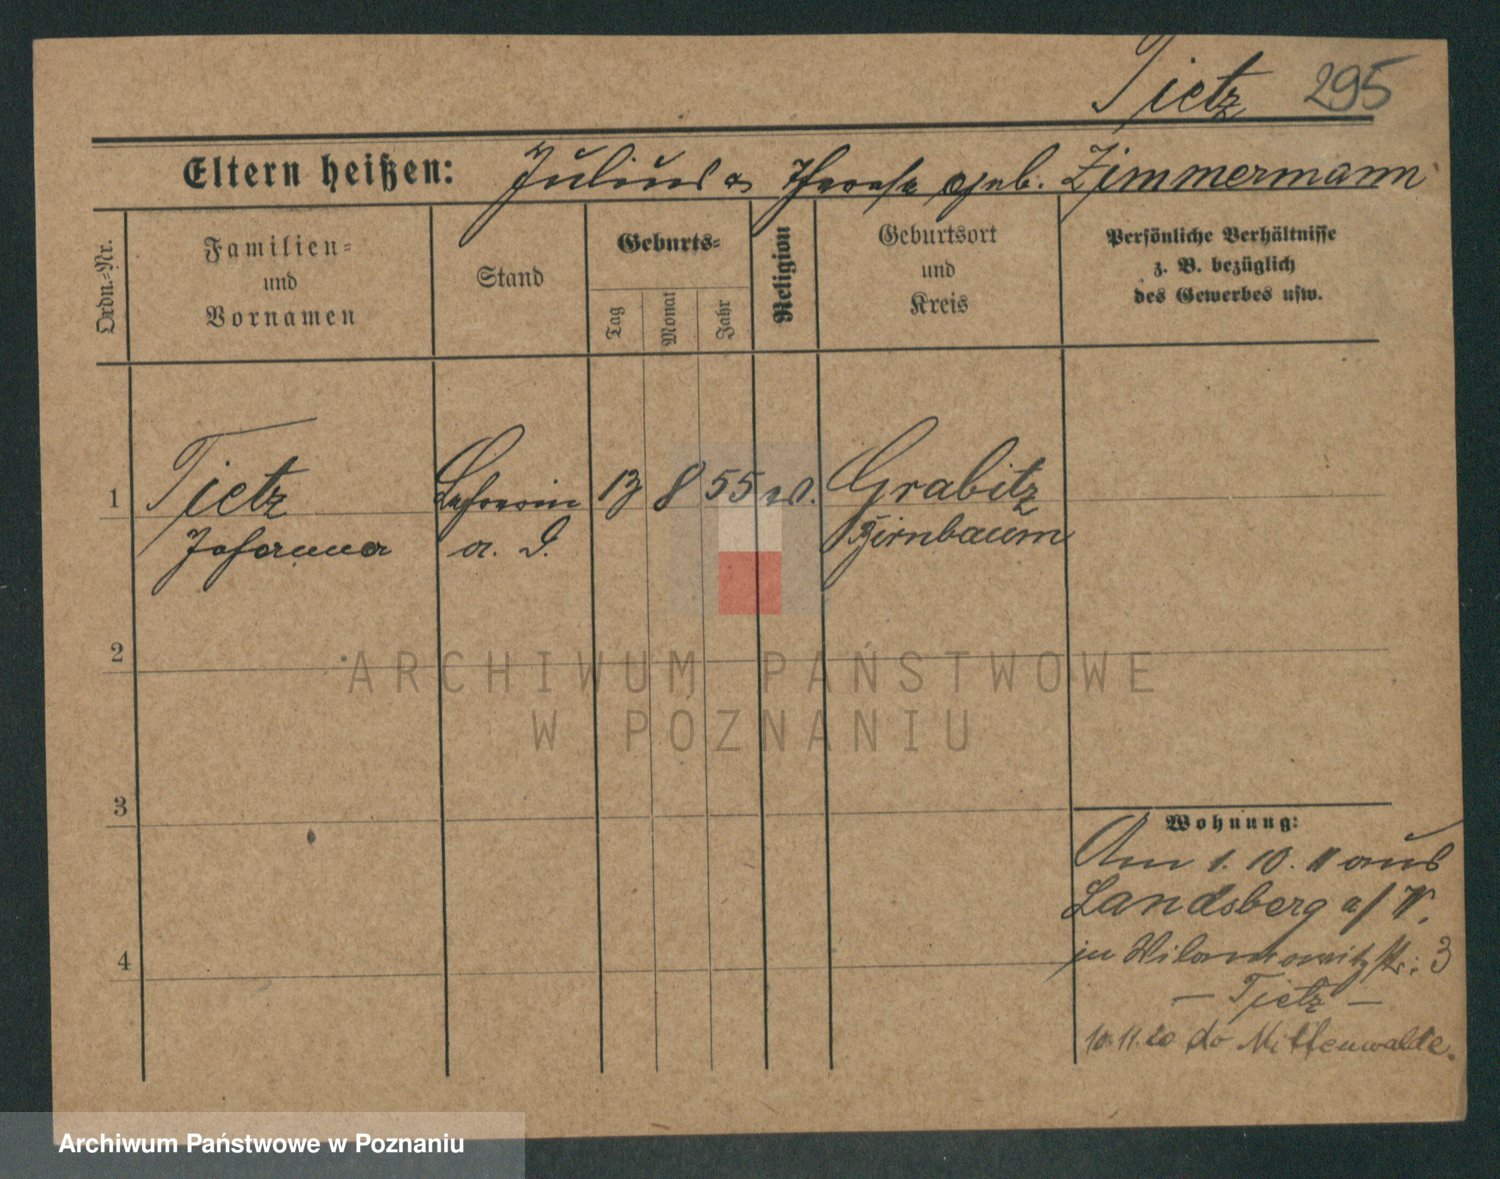 Tietz 295
Eltern heißen: Julius u Therese geb. Zimmermann
Ordn.-Nr.
Familien-
und
Vornamen
Stand
Geburts-
Tag
Monat
Jahr
Religion
Geburtsort
und
Kreis
Persönliche Verhältnisse
z. B. bezüglich
des Gewerbes usw.
1 Tietz Lehrerin 13 8 55 Grabitz
Johanna a. D. Birnbaum
2
3
4
Wohnung:
Am 1. 10. 11 aus
Landsberg a/W.
in Wilamowitzstr: 3
— Tietz —
10.11.20 do Mittenwalde.
ARCHIWUM PAŃSTWOWE
W POZNANIU
Archiwum Państwowe w Poznaniu